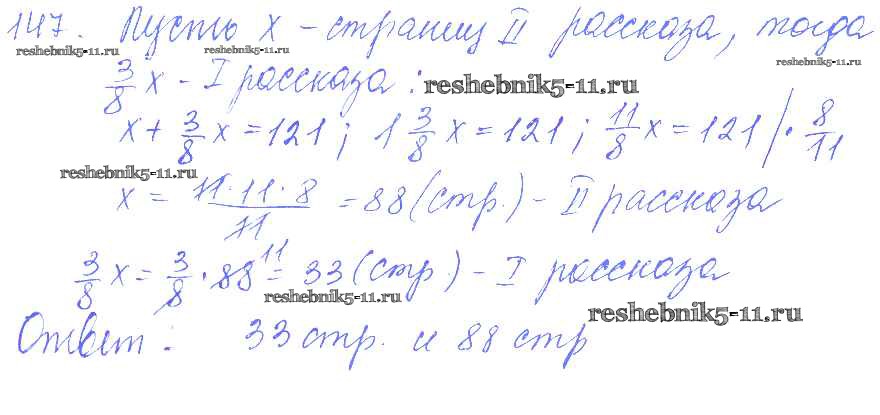 147. Пусть x - страниц II рассказа, тогда
reshebnik5-11.ru reshebnik5-11.ru reshebnik5-11.ru
3/8 x - I рассказа : reshebnik5-11.ru
x + 3/8 x = 121 ; 1 3/8 x = 121 ; 11/8 x = 121 | · 8/11
reshebnik5-11.ru
x = 11·11·8/11 = 88 (стр.) - II рассказа
3/8 x = 3/8 · 88 11 = 33 (стр.) - I рассказа
reshebnik5-11.ru reshebnik5-11.ru
Ответ : 33 стр. и 88 стр